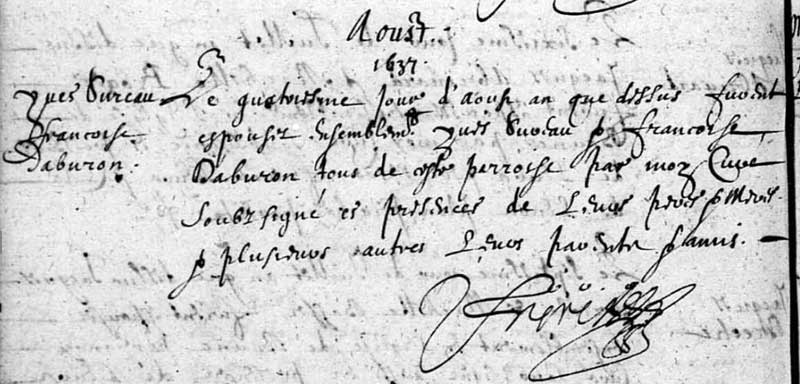 Aoust
1637
Yves Sureau
Francoise
Daburon.
Le quatriesme Jour d'aoust an que dessus furent
espousez Ensemblemt Yves Sureau & Francoise
Daburon tous de cste parroisse par moy Curé
Soubzsigné es presences de Leurs peres & Meres
& plusieurs autres Leurs parents & amis.
Frere